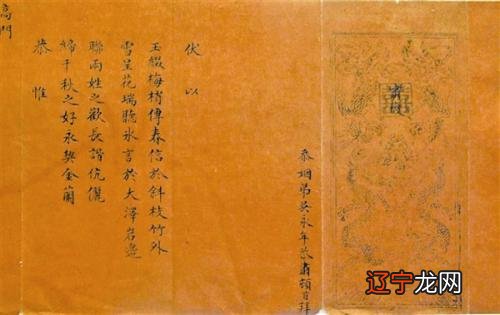 忝姻弟吳永年恭肅頓首拜
伏以
玉綴梅梢傳春信於斜枝竹外
雪呈花瑞聽冰言於大澤岩邊
聯兩姓之歡長諧伉儷
締千秋之好永契金蘭
恭惟
高門
辽宁龙网